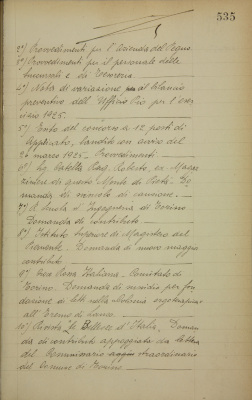 535
2°) Provvedimenti per l'azienda del Pegno
3°) Provvedimenti per il personale delle
Succursali e di Tesoreria
4°) Nota di variazione al bilancio
preventivo dell' Ufficio Pio per l'eser
cizio 1925.
5°) Esito del concorso a 12 posti di
Applicato, bandito con avviso del
26 marzo 1925. Provvedimenti.
6°) Sig. Rag. Roberto, ex Magaz
ziniere di questo Monte di Pietà. Do
manda di
7°) R. Scuola d'Ingegneria di Torino
Domanda di contributo
8°) Istituto Superiore di Magistero del
Piemonte. Domanda di nuovo maggior
contributo
9°) Croce Rossa Italiana. Comitato di
Torino. Domanda di sussidio per fon
dazione di letti nella Colonia
all' Eremo di Lanzo.
10°) Rivista "Le Bellezze d'Italia. Doman
da di contributo appoggiata da lettera
del Commissario straordinario
del Comune di Torino